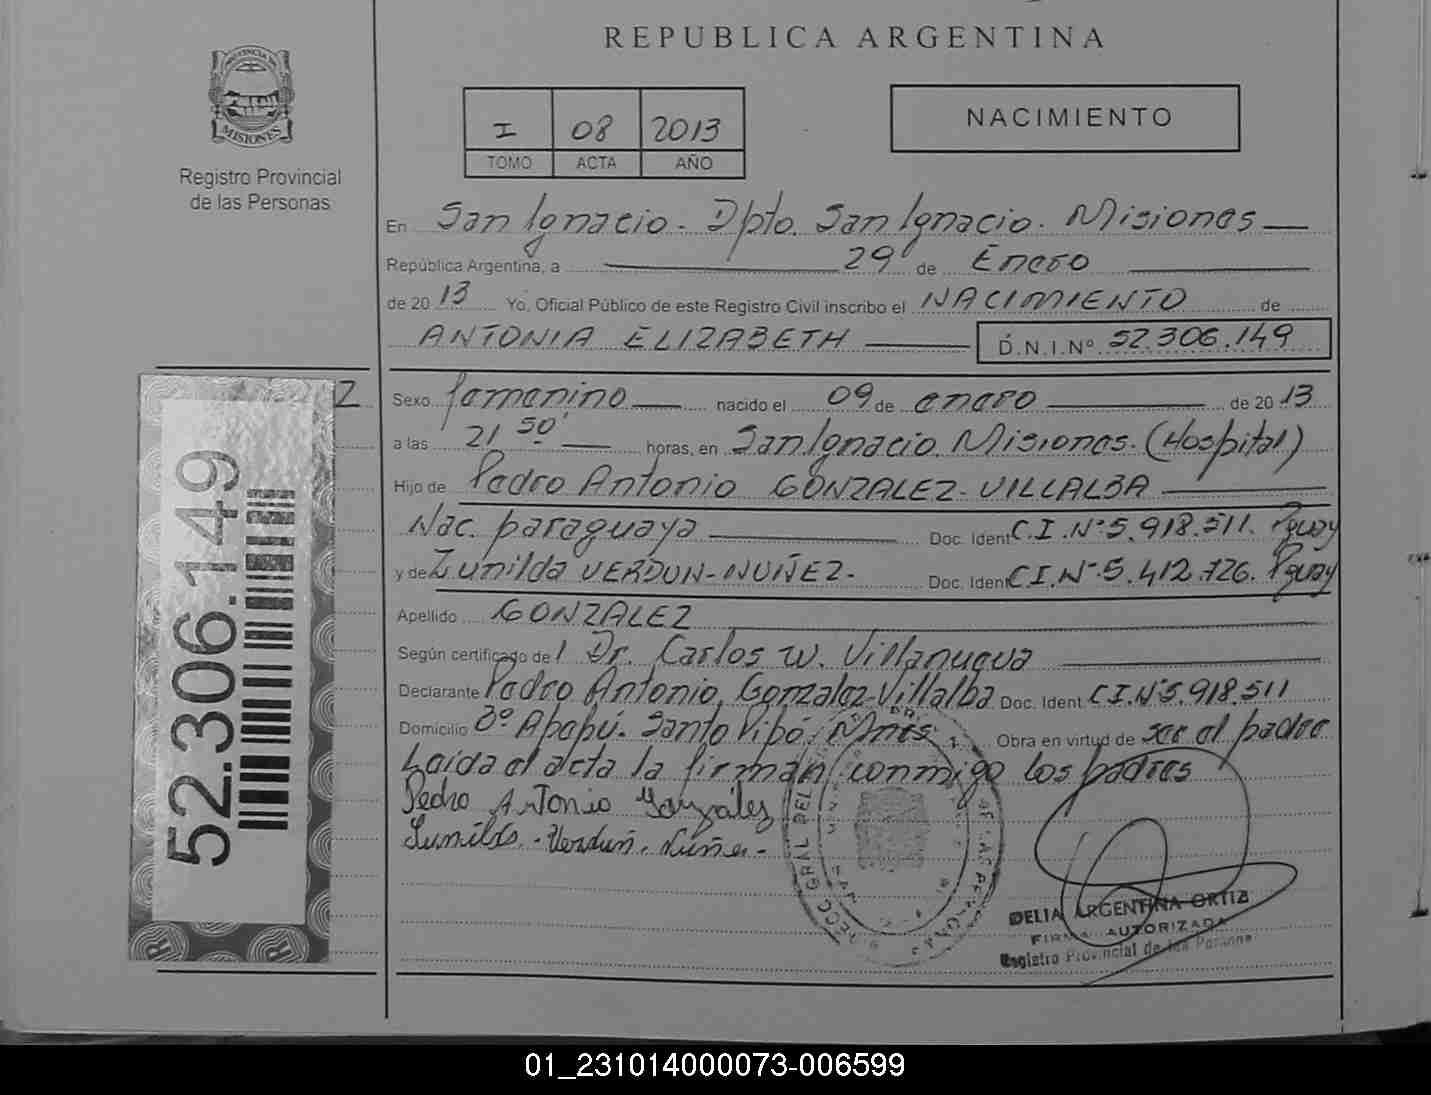 REPUBLICA ARGENTINA
PROVINCIA DE
MISIONES
Registro Provincial
de las Personas
I 08 2013
TOMO ACTA AÑO
NACIMIENTO
En San Ignacio. Dpto. San Ignacio. Misiones
República Argentina, a 29 de Enero
de 2013 Yo, Oficial Público de este Registro Civil inscribo el NACIMIENTO de
ANTONIA ELIZABETH D.N.I.Nº 52.306.149
Sexo femenino nacido el 09 de enero de 2013
a las 21 50' horas, en San Ignacio. Misiones. (Hospital)
Hijo de Pedro Antonio GONZALEZ-VILLALBA
Nac. paraguaya Doc. Ident C.I.Nº5.918.511. Pguay
y de Zunilda VERDUN-NUÑEZ- Doc. Ident C.I.Nº5.412.726. Pguay
Apellido GONZALEZ
Según certificado del Dr. Carlos W. Villanueva
Declarante Pedro Antonio Gonzalez-Villalba Doc. Ident C.I.Nº5.918.511
Domicilio Bº Apepú. Santo Pipó, Mnes. Obra en virtud de ser el padre
Leída el acta la firman conmigo los padres
Pedro Antonio González
Zunilda.-Verdun. Nuñez-
DELIA ARGENTINA ORTIZ
FIRMA AUTORIZADA
Registro Provincial de las Personas
52.306.149
01_231014000073-006599